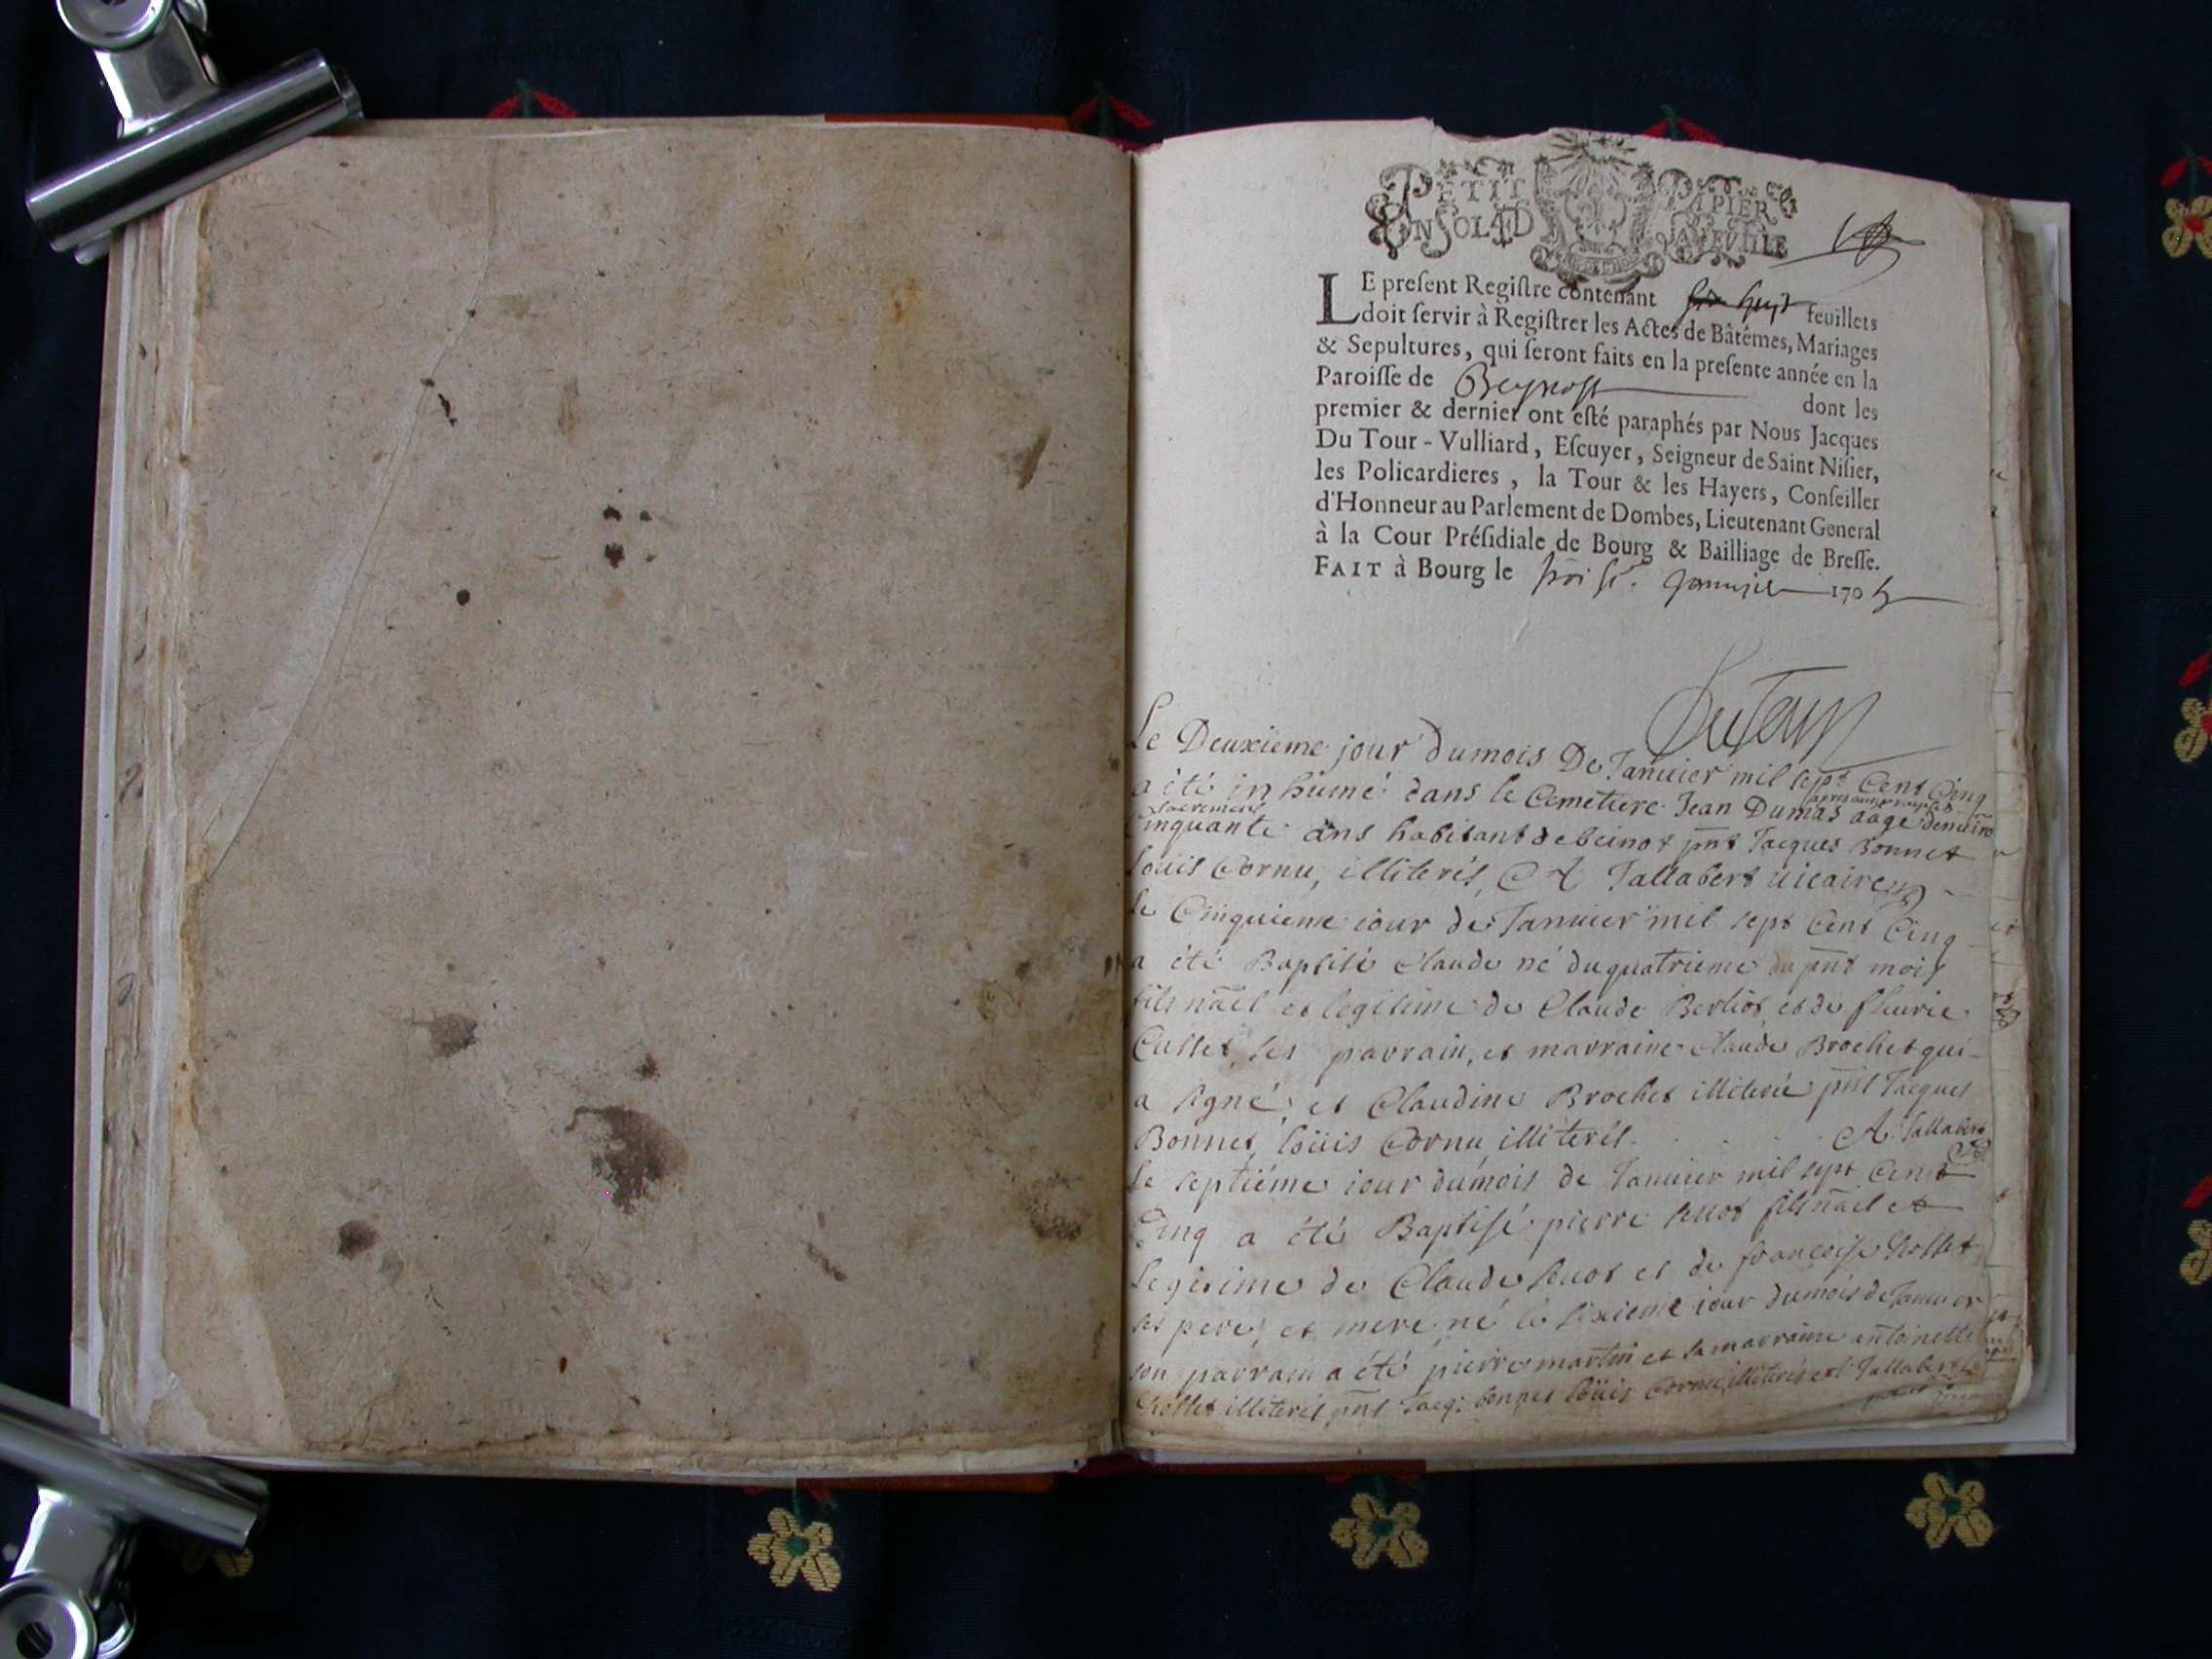 PETIT PAPIER
LE preſent Regiſtre contenant huit feuillets
doit ſervir à Regiſtrer les Actes de Bâtêmes, Mariages
& Sepultures, qui ſeront faits en la preſente année en la
Paroiſſe de Beynost dont les
premier & dernier ont eſté paraphés par Nous Jacques
Du Tour-Vulliard, Eſcuyer, Seigneur de Saint Niſier,
les Policardieres, la Tour & les Hayers, Conſeiller
d'Honneur au Parlement de Dombes, Lieutenant General
à la Cour Préſidiale de Bourg & Bailliage de Breſſe.
FAIT à Bourg le Janvier 1705
DuTour
Le Deuxieme jour du mois De Januier mil sept Cent Cinq
a été inhumé dans le Cemetiere Jean Dumas aagé
sacremens
Cinquante ans habitant de beinot pnt Jacques Bonnet
Loüis Cornu, illiterés, A Tallabert uicaire
le Cinquieme iour de Januier mil sept Cent Cinq
a été Baptisé Claude né du quatrieme du pnt mois
fils nãel et legitime de Claude Berliot et de fleurie
Cusset, ses parrain, et marraine Claude Brochet qui
a signé, et Claudine Brochet illiterée pnts Jacques
Bonnet, Loüis Cornu illiterés. A. Tallabert
Le septiéme iour du mois de Januier mil sept Cent
Cinq a été Baptisé pierre fils nãel et
legitime de Claude et de françoise
ses pere, et mere né le sixieme iour du mois de Januier
son parrain a été pierre martin et sa marraine antoinette
illiterés pnts Jacq: bonnet Loüis Cornu illiterés et A Tallabert